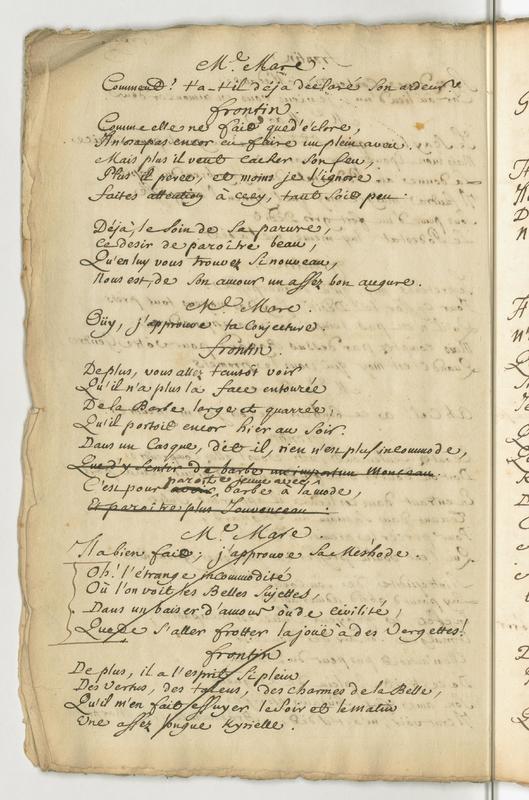 Me. Mare.
Comment! t'a-t'il déja déclaré Son ardeur
frontin
Comme elle ne fait que d'éclore,
Il n'ose pas encor en faire un plein aveu.
Mais plus il veut cacher Son feu,
Plus il perce, et moins je l'ignore.
faites attention à cecy, tant Soit peu.
Déjà, le Soin de Sa parure,
Ce desir de paroître beau,
Qu'en luy vous trouvez Si nouveau,
Nous est, de Son amour un assez bon augure.
Me. Mare.
Oüy, j'approuve ta Conjecture.
frontin.
De plus, vous allez tantôt voir
Qu'il n'a plus la face entourée
De la Barbe large et quarrée,
Qu'il portoit encor hier au Soir.
Dans un Casque, dit il, rien n'est plus incommode,
Que d'y Sentir de barbe un importun Monceau.
C'est pour paroître jeune avec barbe à la mode,
Et paroître plus Jouvenceau.
Me. Mare.
Il a bien fait; j'approuve Sa Methode.
Oh! l'étrange incommodité
Où l'on voit les Belles Sujettes,
Dans un baiser d'amour ou de Civilité,
Que de S'aller frotter la joüe à des Vergettes!
frontin.
De plus, il a l'esprit Si plein
Des Vertus, des talens, des charmes de la Belle,
Qu'il m'en fait essuyer le Soir et le matin
Une assez longue Kyrielle.